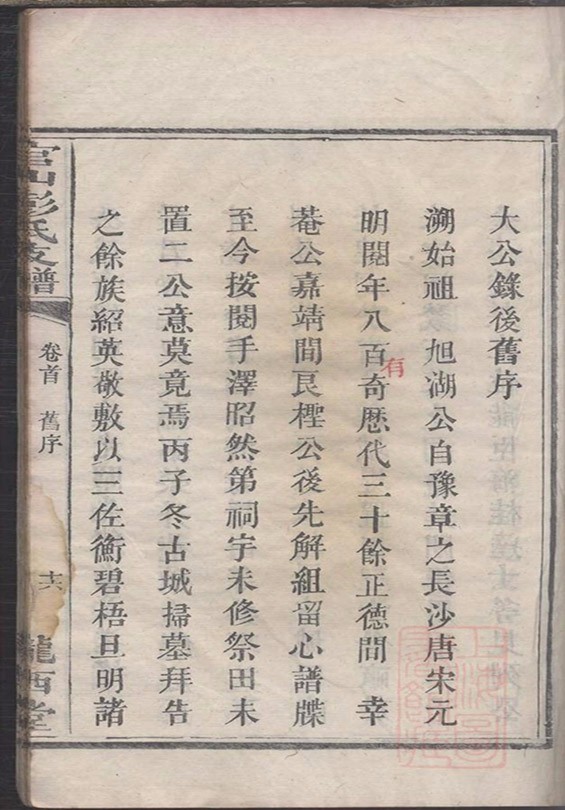 大公錄後舊序
溯始祖旭湖公自豫章之長沙唐宋元
明閱年八百有奇厯代三十餘正德間 幸
菴公嘉靖間艮樫公後先解組留心譜牒
至今按閱手澤昭然第祠宇未修祭田未
置二公意莫竟焉丙子冬古城掃墓拜告
之餘族紹英敬敷以三佐衡碧梧旦明諸
官山彭氏支譜
卷首 舊序
十六
隴西堂